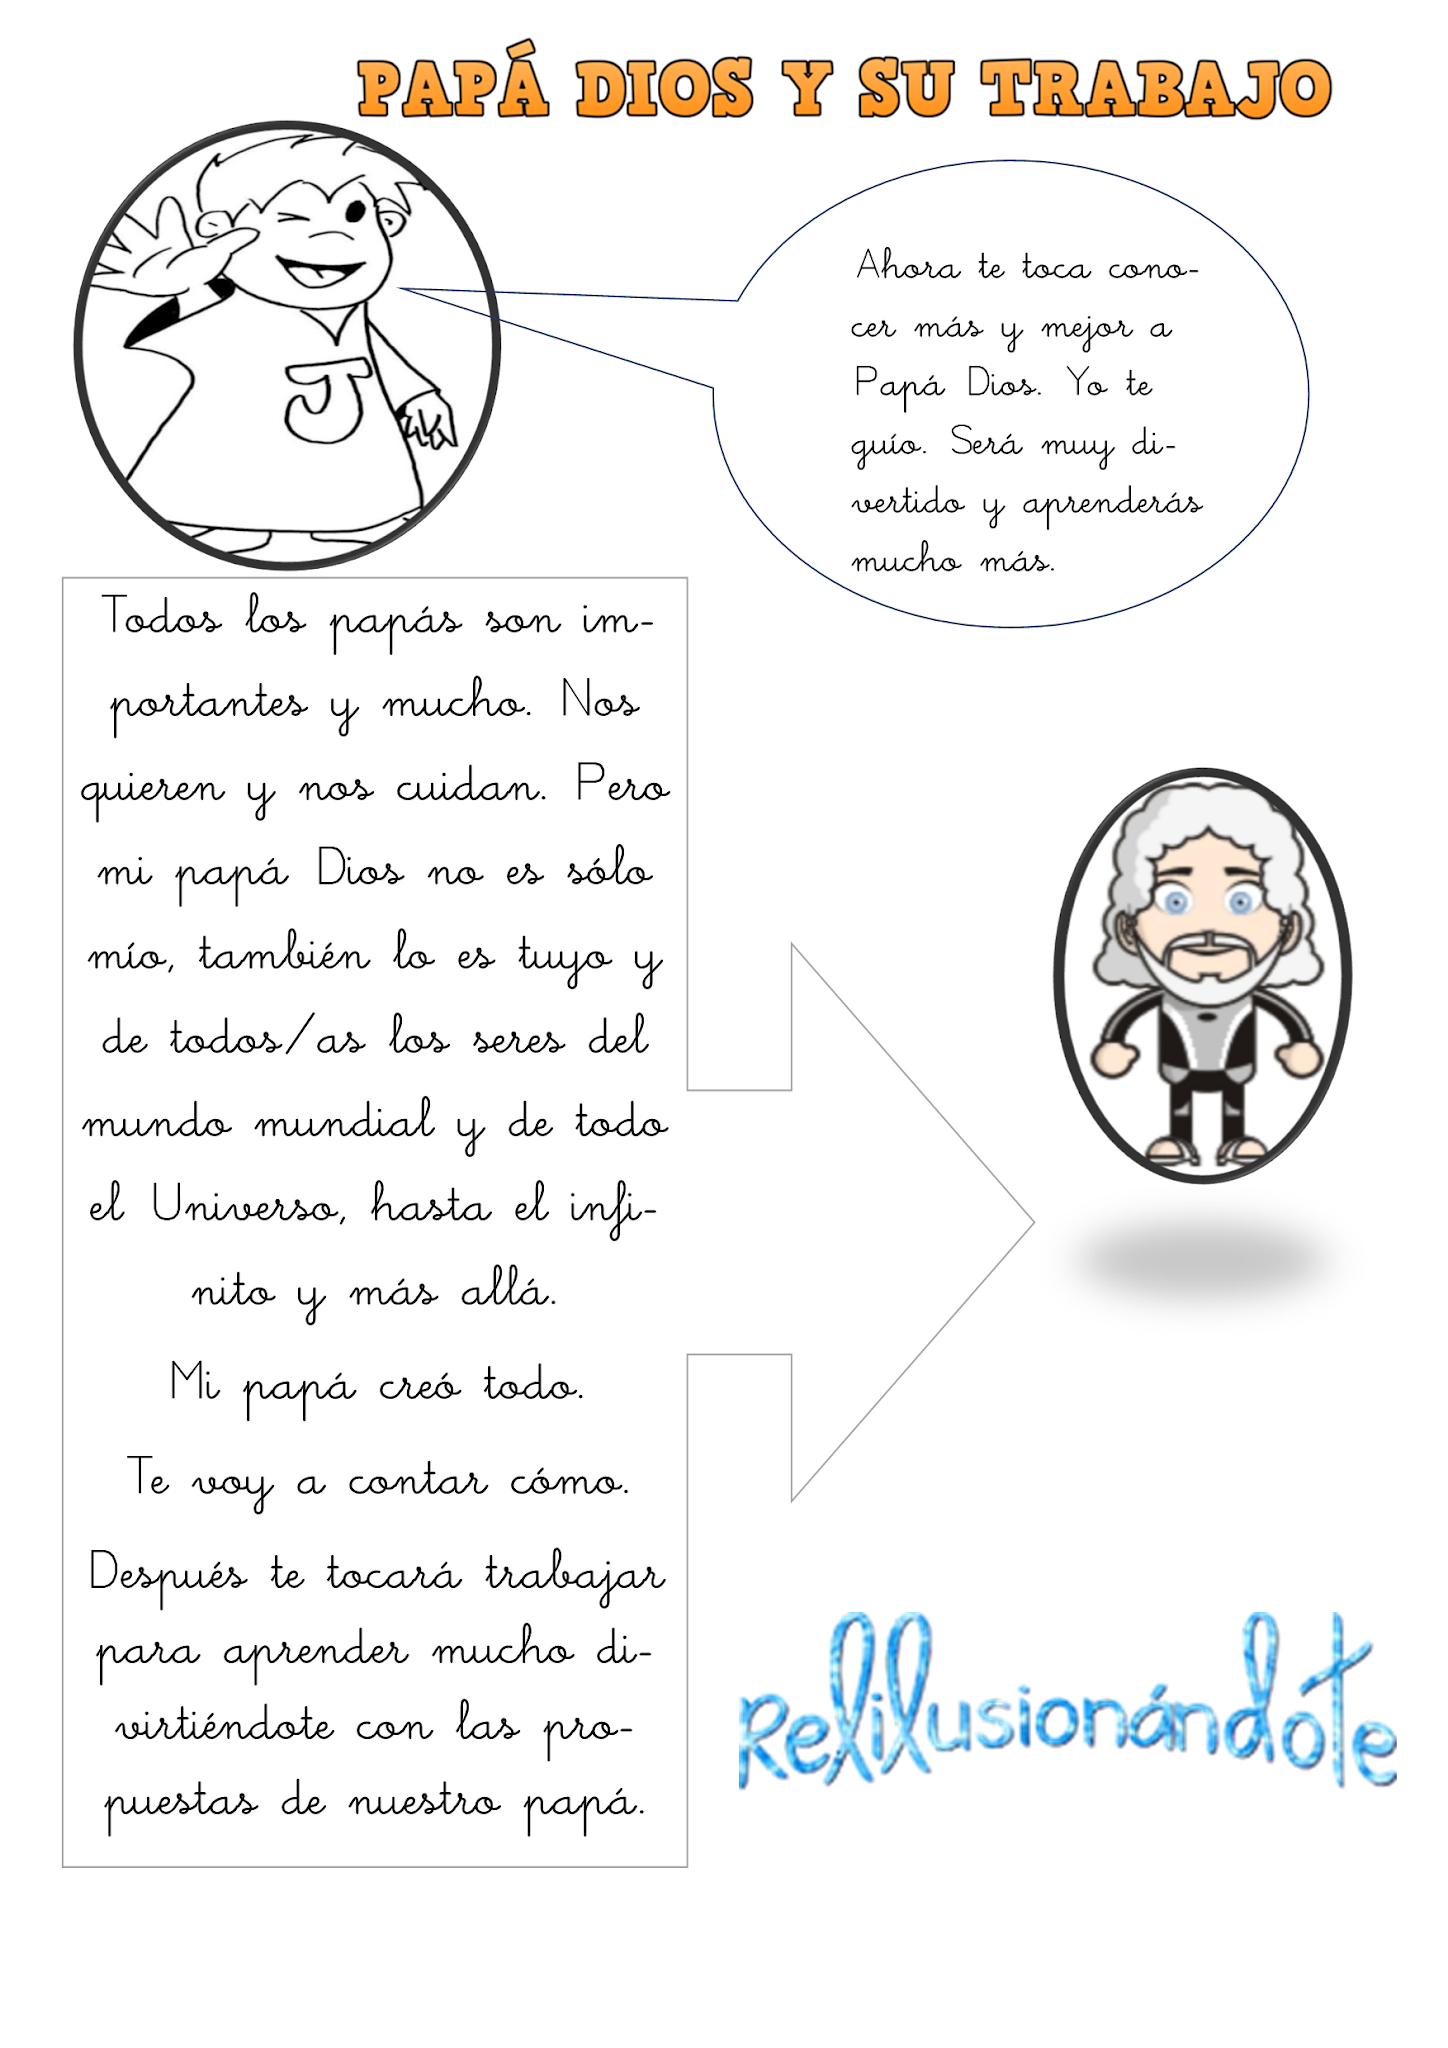 PAPÁ DIOS Y SU TRABAJO
J
Ahora te toca cono-
cer más y mejor a
Papá Dios. Yo te
guío. Será muy di-
vertido y aprenderás
mucho más.
Todos los papás son im-
portantes y mucho. Nos
quieren y nos cuidan. Pero
mi papá Dios no es sólo
mío, también lo es tuyo y
de todos/as los seres del
mundo mundial y de todo
el Universo, hasta el infi-
nito y más allá.
Mi papá creó todo.
Te voy a contar cómo.
Después te tocará trabajar
para aprender mucho di-
virtiéndote con las pro-
puestas de nuestro papá.
Relilusionándote